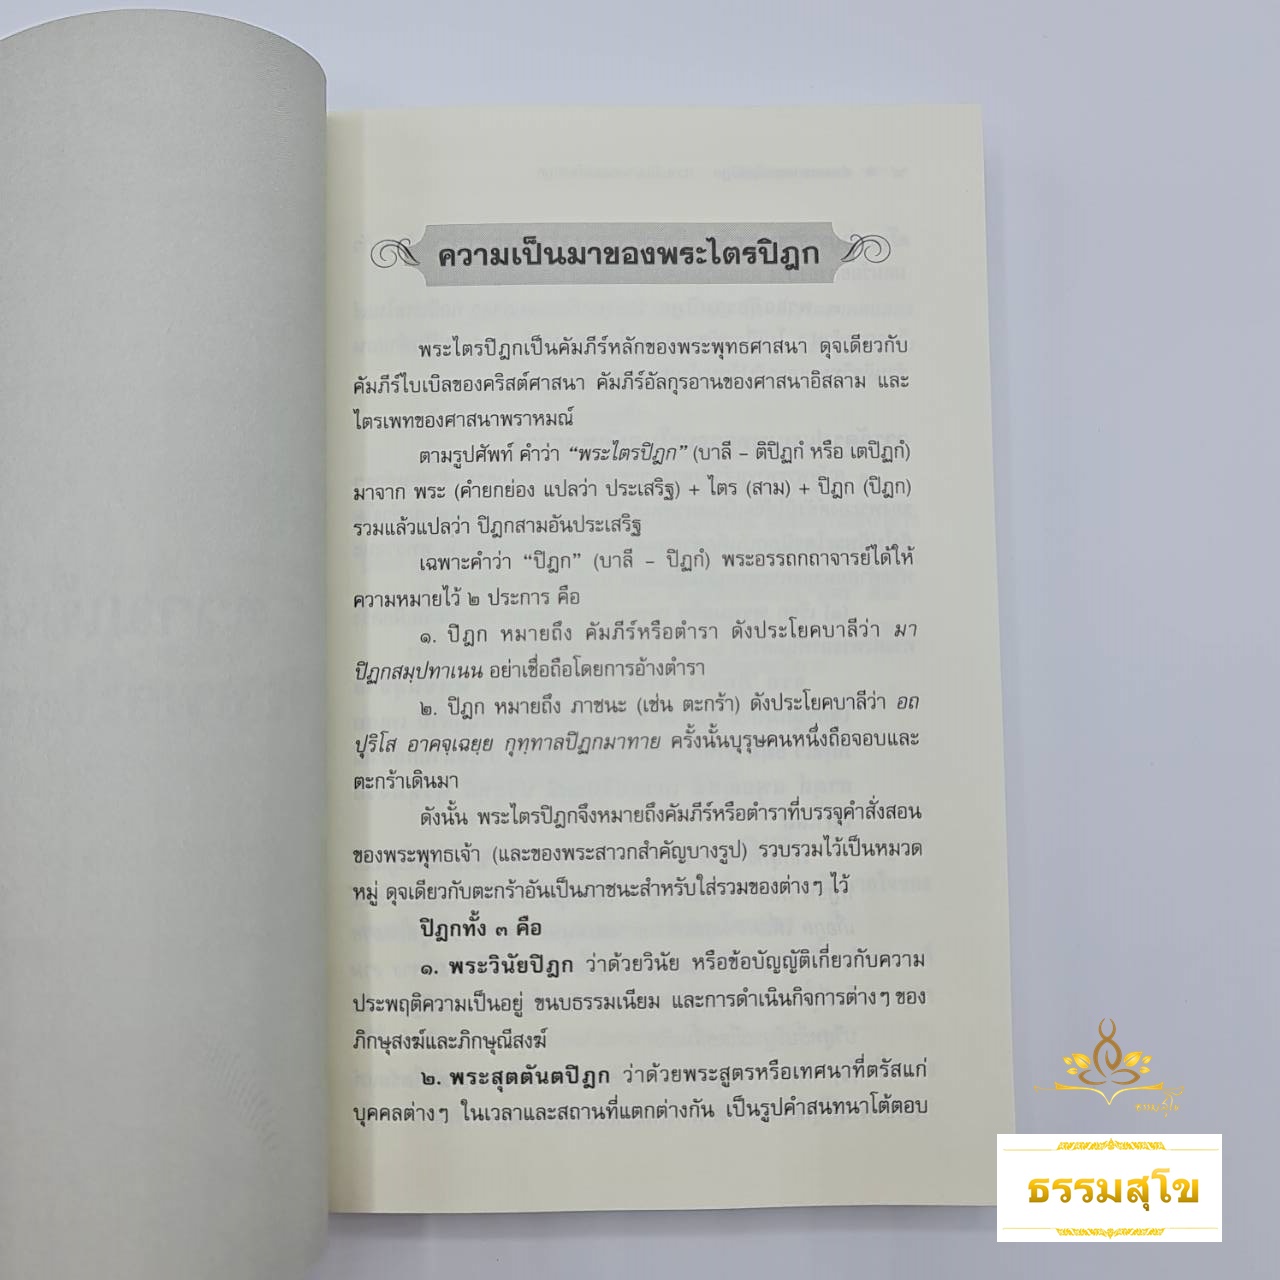 ความเป็นมาของพระไตรปิฎก
พระไตรปิฎกเป็นคัมภีร์หลักของพระพุทธศาสนา ดุจเดียวกับ
คัมภีร์ไบเบิลของคริสต์ศาสนา คัมภีร์อัลกุรอานของศาสนาอิสลาม และ
ไตรเพทของศาสนาพราหมณ์
ตามรูปศัพท์ คำว่า “พระไตรปิฎก” (บาลี – ติปิฏกํ หรือ เตปิฏกํ)
มาจาก พระ (คำยกย่อง แปลว่า ประเสริฐ) + ไตร (สาม) + ปิฎก (ปิฎก)
รวมแล้วแปลว่า ปิฎกสามอันประเสริฐ
เฉพาะคำว่า “ปิฎก” (บาลี – ปิฏกํ) พระอรรถกถาจารย์ได้ให้
ความหมายไว้ ๒ ประการ คือ
๑. ปิฎก หมายถึง คัมภีร์หรือตำรา ดังประโยคบาลีว่า มา
ปิฏกสมฺปทาเนน อย่าเชื่อถือโดยการอ้างตำรา
๒. ปิฎก หมายถึง ภาชนะ (เช่น ตะกร้า) ดังประโยคบาลีว่า อถ
ปุริโส อาคจฺเฉยฺย กุทฺทาลปิฏกมาทาย ครั้งนั้นบุรุษคนหนึ่งถือจอบและ
ตะกร้าเดินมา
ดังนั้น พระไตรปิฎกจึงหมายถึงคัมภีร์หรือตำราที่บรรจุคำสั่งสอน
ของพระพุทธเจ้า (และของพระสาวกสำคัญบางรูป) รวบรวมไว้เป็นหมวด
หมู่ ดุจเดียวกับตะกร้าอันเป็นภาชนะสำหรับใส่รวมของต่างๆ ไว้
ปิฎกทั้ง ๓ คือ
๑. พระวินัยปิฎก ว่าด้วยวินัย หรือข้อบัญญัติเกี่ยวกับความ
ประพฤติความเป็นอยู่ ขนบธรรมเนียม และการดำเนินกิจการต่างๆ ของ
ภิกษุสงฆ์และภิกษุณีสงฆ์
๒. พระสุตตันตปิฎก ว่าด้วยพระสูตรหรือเทศนาที่ตรัสแก่
บุคคลต่างๆ ในเวลาและสถานที่แตกต่างกัน เป็นรูปคำสนทนาโต้ตอบ
ธรรมสุโข
ธรรมสุโข